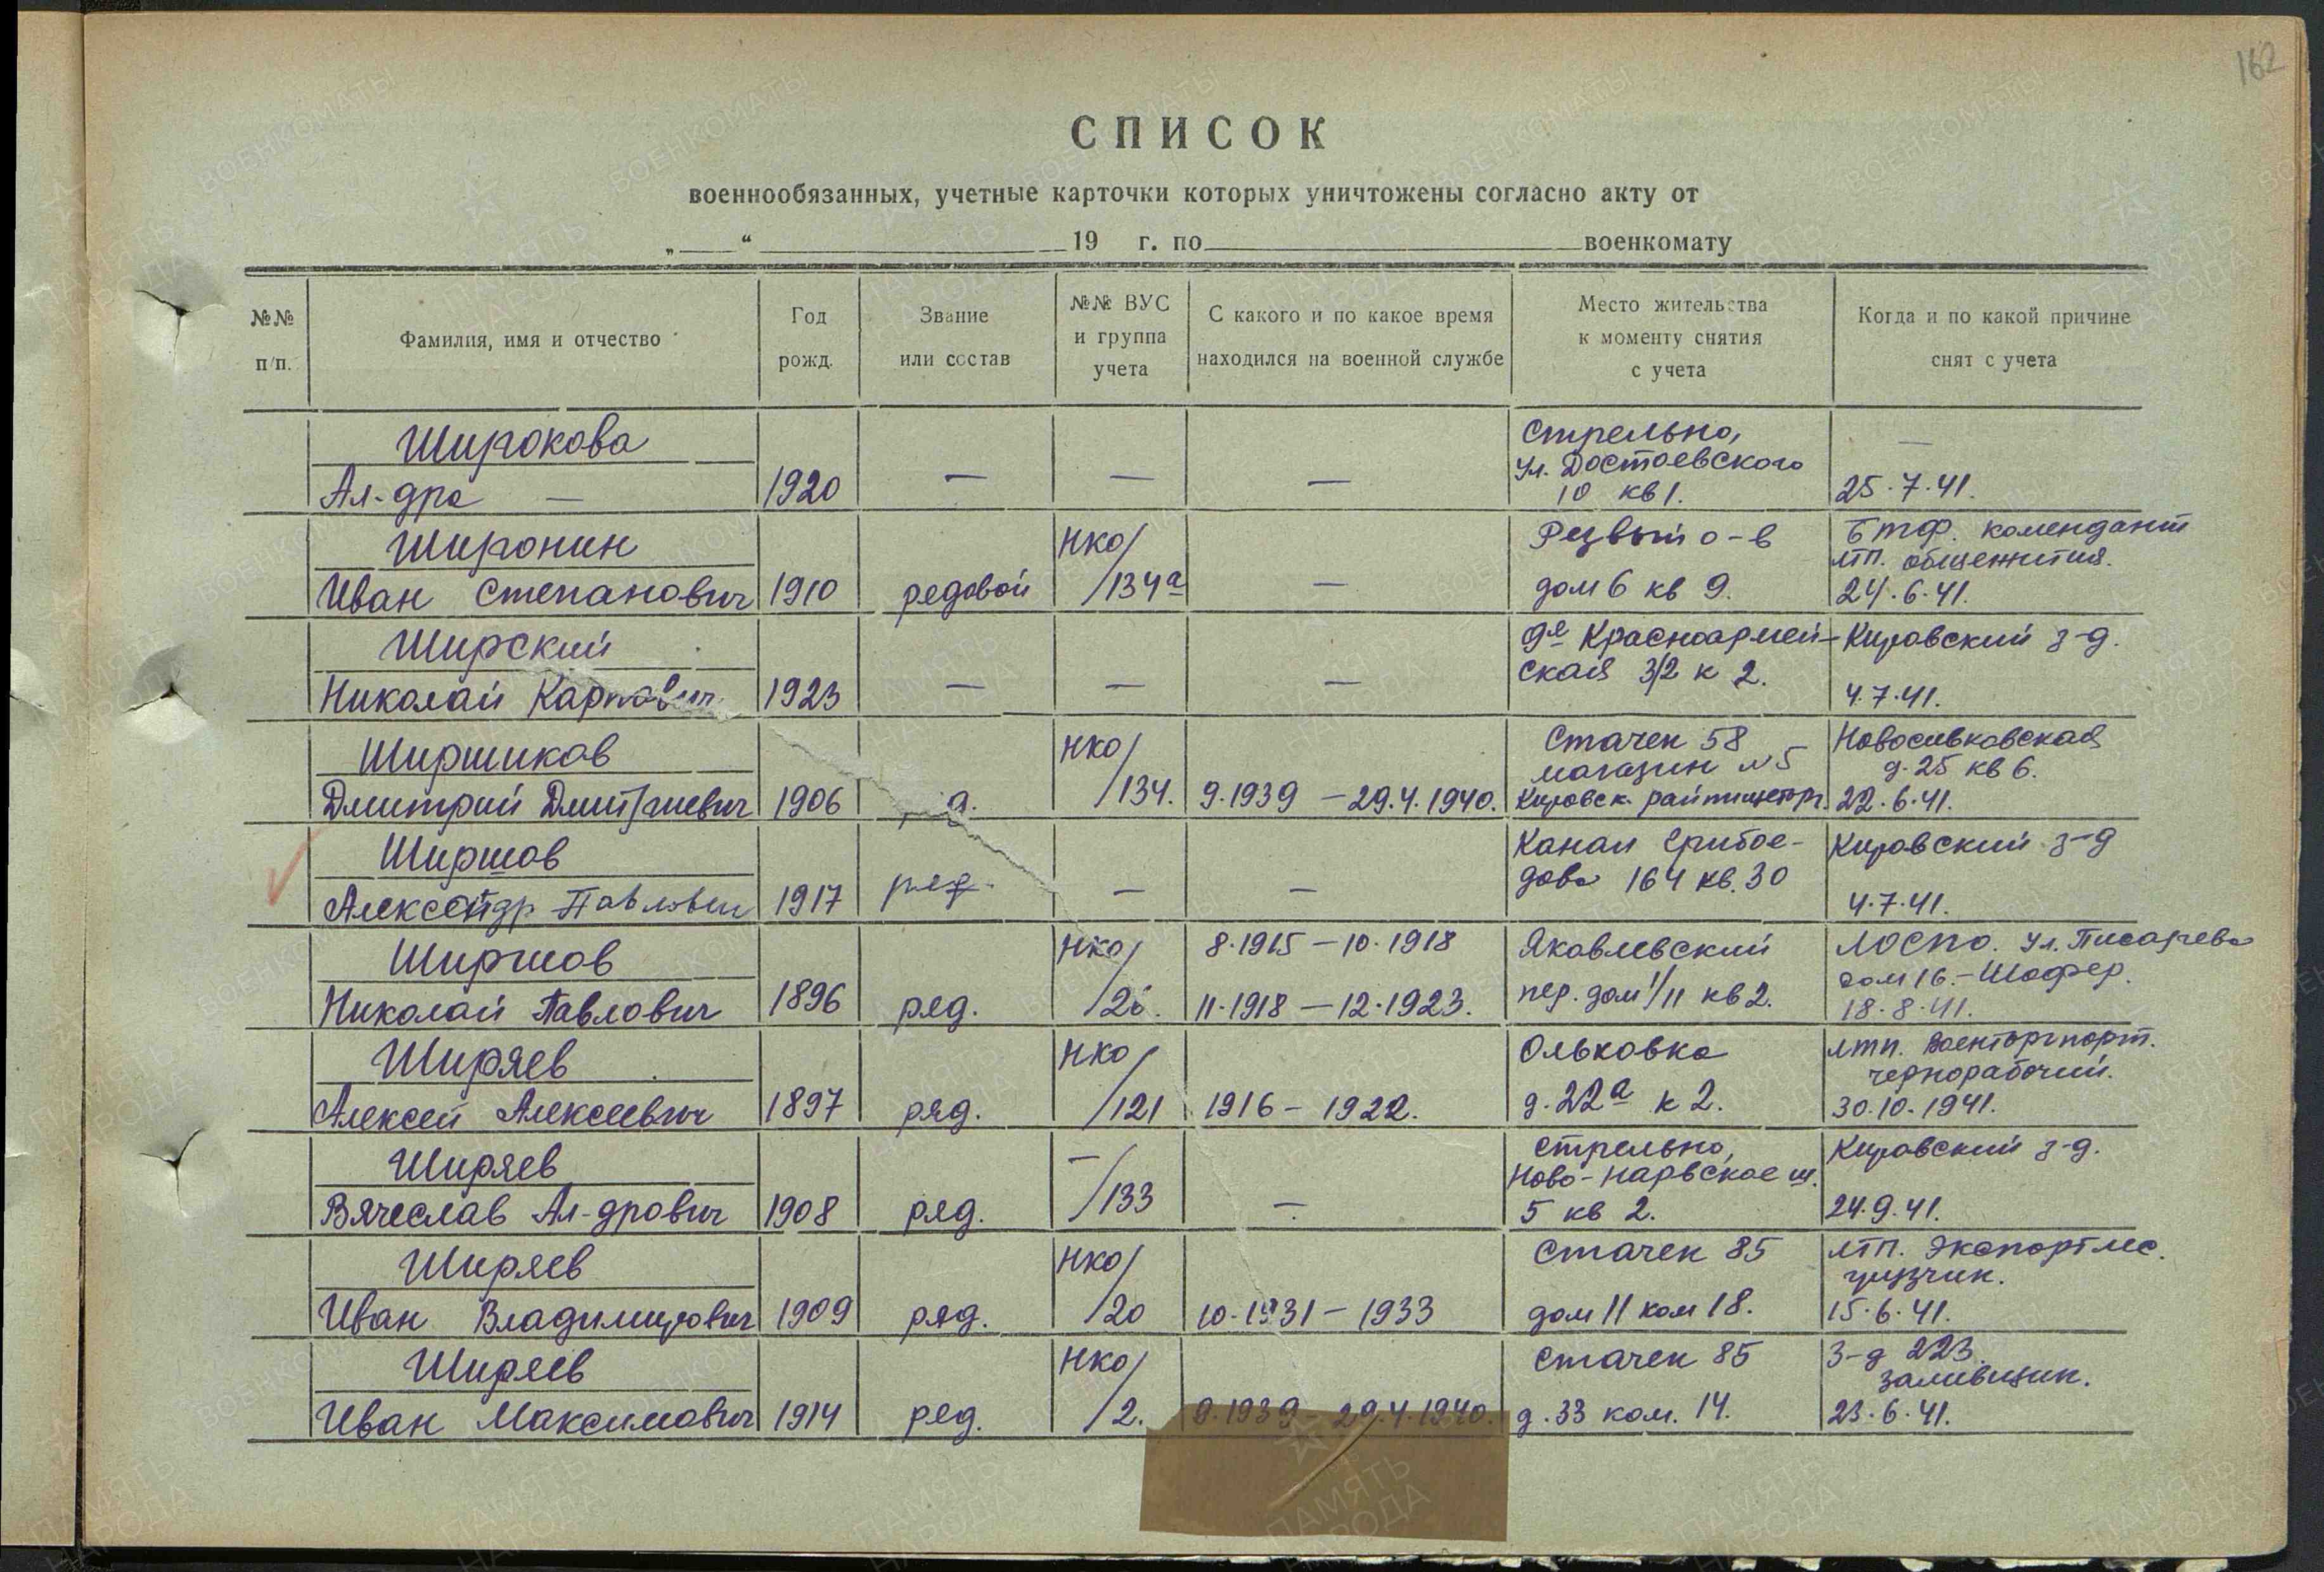 162
СПИСОК
военнообязанных, учетные карточки которых уничтожены согласно акту от
„ “ 19 г. по военкомату
№№ п/п. Фамилия, имя и отчество Год рожд. Звание или состав №№ ВУС и группа учета С какого и по какое время находился на военной службе Место жительства к моменту снятия с учета Когда и по какой причине снят с учета
Широкова Стрельно, —
ул. Достоевского
Ал-дра — 1920 — — — 10 кв 1. 25.7.41.
Широнин НКО/ Резвый о-в Бтф. комендант
лтп. общежития.
Иван Степанович 1910 редовой /134а — дом 6 кв 9. 24.6.41.
Ширский 9я Красноармей- Кировский з-д.
ская 3/2 к 2.
Николай Карпович 1923 — — — 4.7.41.
Ширшиков НКО/ Стачек 58 Новосивковская
магазин №5 д. 25 кв 6.
Дмитрий Дмитриевич 1906 /134. 9.1939 — 29.4.1940. Кировск. райпищеторг. 22.6.41.
Ширшов Канал Грибое- Кировский з-д
дова 164 кв. 30
Александр Павлович 1917 ряд. — — 4.7.41.
Ширшов НКО/ 8.1915 — 10.1918 Яковлевский ЛОСПО. ул. Писарева
дом 16. — Шофер.
Николай Павлович 1896 ряд. 11.1918 — 12.1923. пер. дом 1/11 кв 2. 18.8.41.
Ширяев НКО/ Ольховка лтп. Военторгпорт.
чернорабочий.
Алексей Алексеевич 1897 ряд. /121 1916 — 1922. д. 22а к 2. 30.10.1941.
Ширяев — Стрельно, Кировский з-д.
Ново-Нарвское ш.
Вячеслав Ал-дрович 1908 ряд. /133 — 5 кв 2. 24.9.41.
Ширяев НКО/ Стачек 85 лтп. Экспортлес.
грузчик.
Иван Владимирович 1909 ряд. /20 10.1931 — 1933 дом 11 ком 18. 15.6.41.
Ширяев НКО/ Стачек 85 З-д 223.
заливщик.
Иван Максимович 1914 ряд. /2. 9.1939 — 29.4.1940. д. 33 ком. 14. 23.6.41.